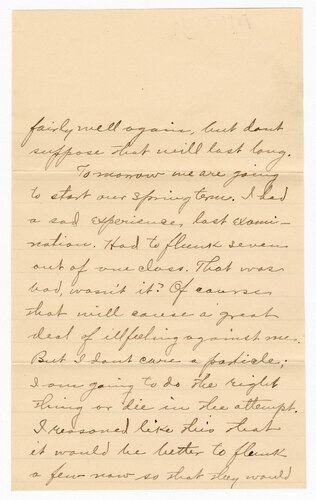 fairly well again, but dont
suppose that will last long.
Tomorrow we are going
to start our Spring term. I had
a sad experience, last exami-
nation. Had to flunk seven
out of one class. That was
bad, wasn't it? Of course
that will cause a great
deal of illfeeling against me.
But I dont care a particle;
I am going to do the right
thing or die in the attempt.
I reasoned like this that
it would be better to flunk
a few now so that they would